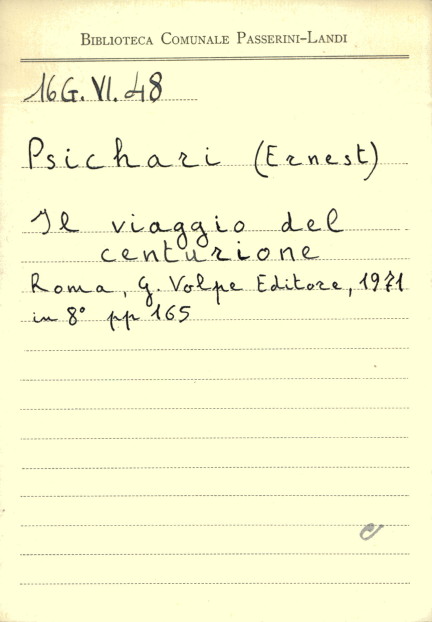 Biblioteca Comunale Passerini-Landi
16G.VI.48
Psichari (Ernest)
Il viaggio del
centurione
Roma, G. Volpe Editore, 1971
in 8° pp 165
e